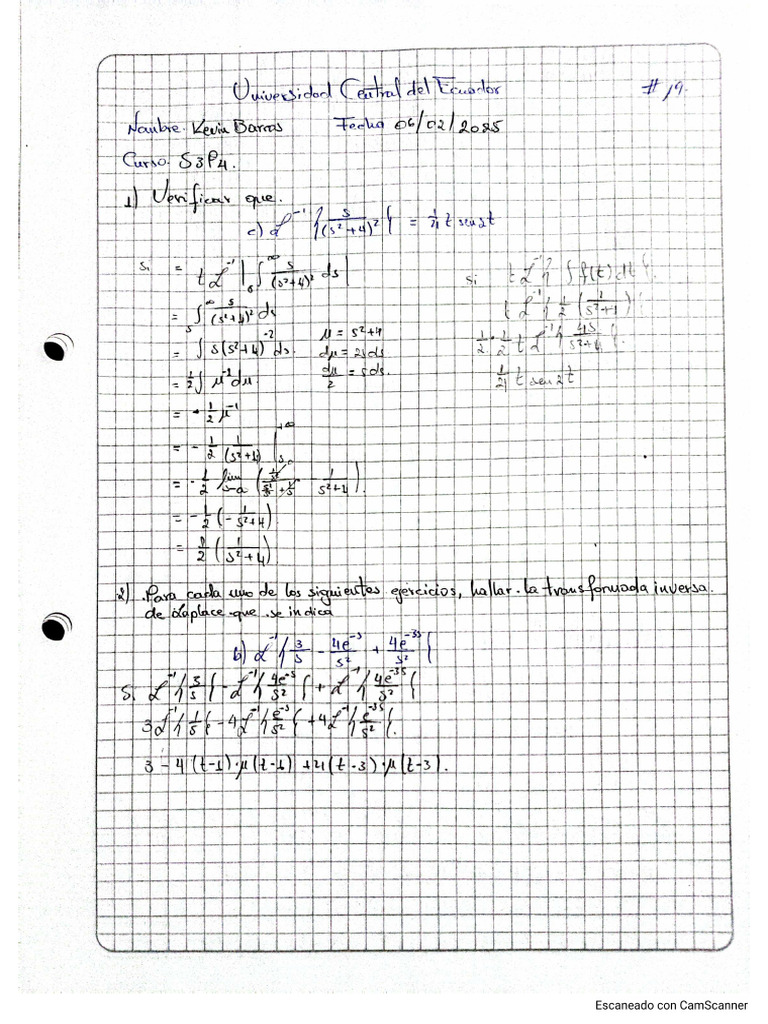 Universidad Central del Ecuador # 19.
Nombre: Kevin Barros Fecha 06/02/2025
Curso: S3P4.
1) Verificar que.
c) ℒ⁻¹{s/(s²+4)²} = 1/4 t sen 2t
Si = t ℒ⁻¹|∫₆^∞ s/(s²+4)² ds|
= ∫ₛ^∞ s/(s²+4)² ds
= ∫ s(s²+4)⁻² ds.
= 1/2 ∫ μ⁻² dμ.
= - 1/2 μ⁻¹
= - 1/2 1/(s²+4) |
= - 1/2 lim ( - 1/(s²+4) ).
= - 1/2 (- 1/(s²+4))
= 1/2 (1/(s²+4))
μ = s²+4
dμ = 2s ds
dμ/2 = s ds.
si t ℒ⁻¹{ ∫ f(t) dt }.
t ℒ⁻¹{ 1/2 (1/(s²+4)) }
1/2 · 1/2 t ℒ⁻¹{ 4s/(s²+4) }.
1/4 t sen 2t
2) Para cada uno de los siguientes ejercicios, hallar la transformada inversa.
de Laplace que se indica
b) ℒ⁻¹{3/s - 4e⁻ˢ/s² + 4e⁻³ˢ/s²}
Si ℒ⁻¹{3/s} - ℒ⁻¹{4e⁻ˢ/s²} + ℒ⁻¹{4e⁻³ˢ/s²}
3ℒ⁻¹{1/s} - 4ℒ⁻¹{e⁻ˢ/s²} + 4ℒ⁻¹{e⁻³ˢ/s²}.
3 - 4(t-1)·μ(t-1) + 4(t-3)·μ(t-3).
Escaneado con CamScanner